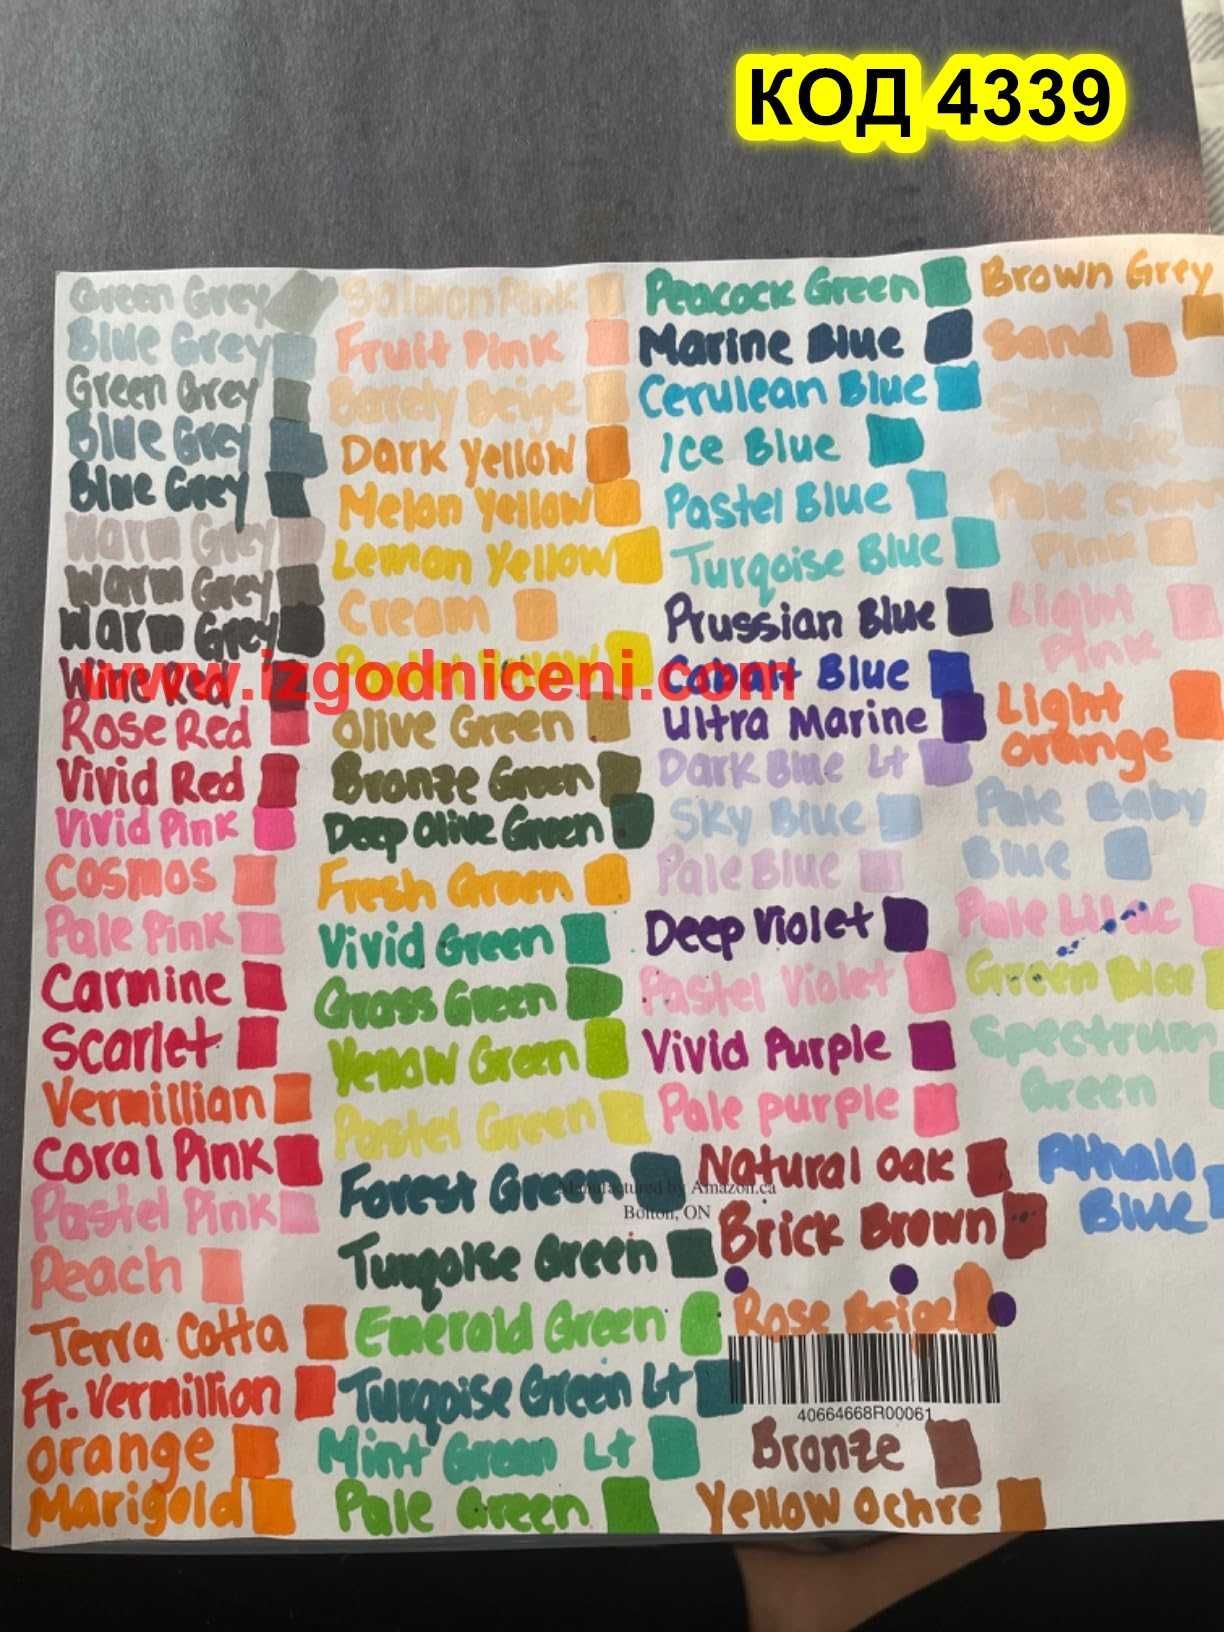 КОД 4339
Green Grey
Blue Grey
Green Grey
Blue Grey
Blue Grey
Warm Grey
Warm Grey
Warm Grey
Wine Red
Rose Red
Vivid Red
Vivid Pink
Cosmos
Pale Pink
Carmine
Scarlet
Vermillian
Coral Pink
Pastel Pink
Peach
Terra Cotta
Fr. Vermillion
Orange
Marigold
Salmon Pink
Fruit Pink
Barely Beige
Dark Yellow
Melon Yellow
Lemon Yellow
Cream
Pastel Yellow
www.izgodniceni.com
Olive Green
Bronze Green
Deep Olive Green
Fresh Green
Vivid Green
Grass Green
Yellow Green
Pastel Green
Forest Green
Turqoise Green
Emerald Green
Turqoise Green Lt
Mint Green Lt
Pale Green
Peacock Green
Marine Blue
Cerulean Blue
Ice Blue
Pastel Blue
Turqoise Blue
Prussian Blue
Cobalt Blue
Ultra Marine
Dark Blue Lt
Sky Blue
Pale Blue
Deep Violet
Pastel Violet
Vivid Purple
Pale purple
Natural Oak
Manufactured by Amazon.ca
Bolton, ON
Brick Brown
Rose Beige
40664668R00061
Bronze
Yellow Ochre
Brown Grey
Sand
Skin
White
Pale
Pink
Light
Pink
Light
Orange
Pale Baby
Blue
Pale Lilac
Green
Spectrum
Green
Pthalo
Blue